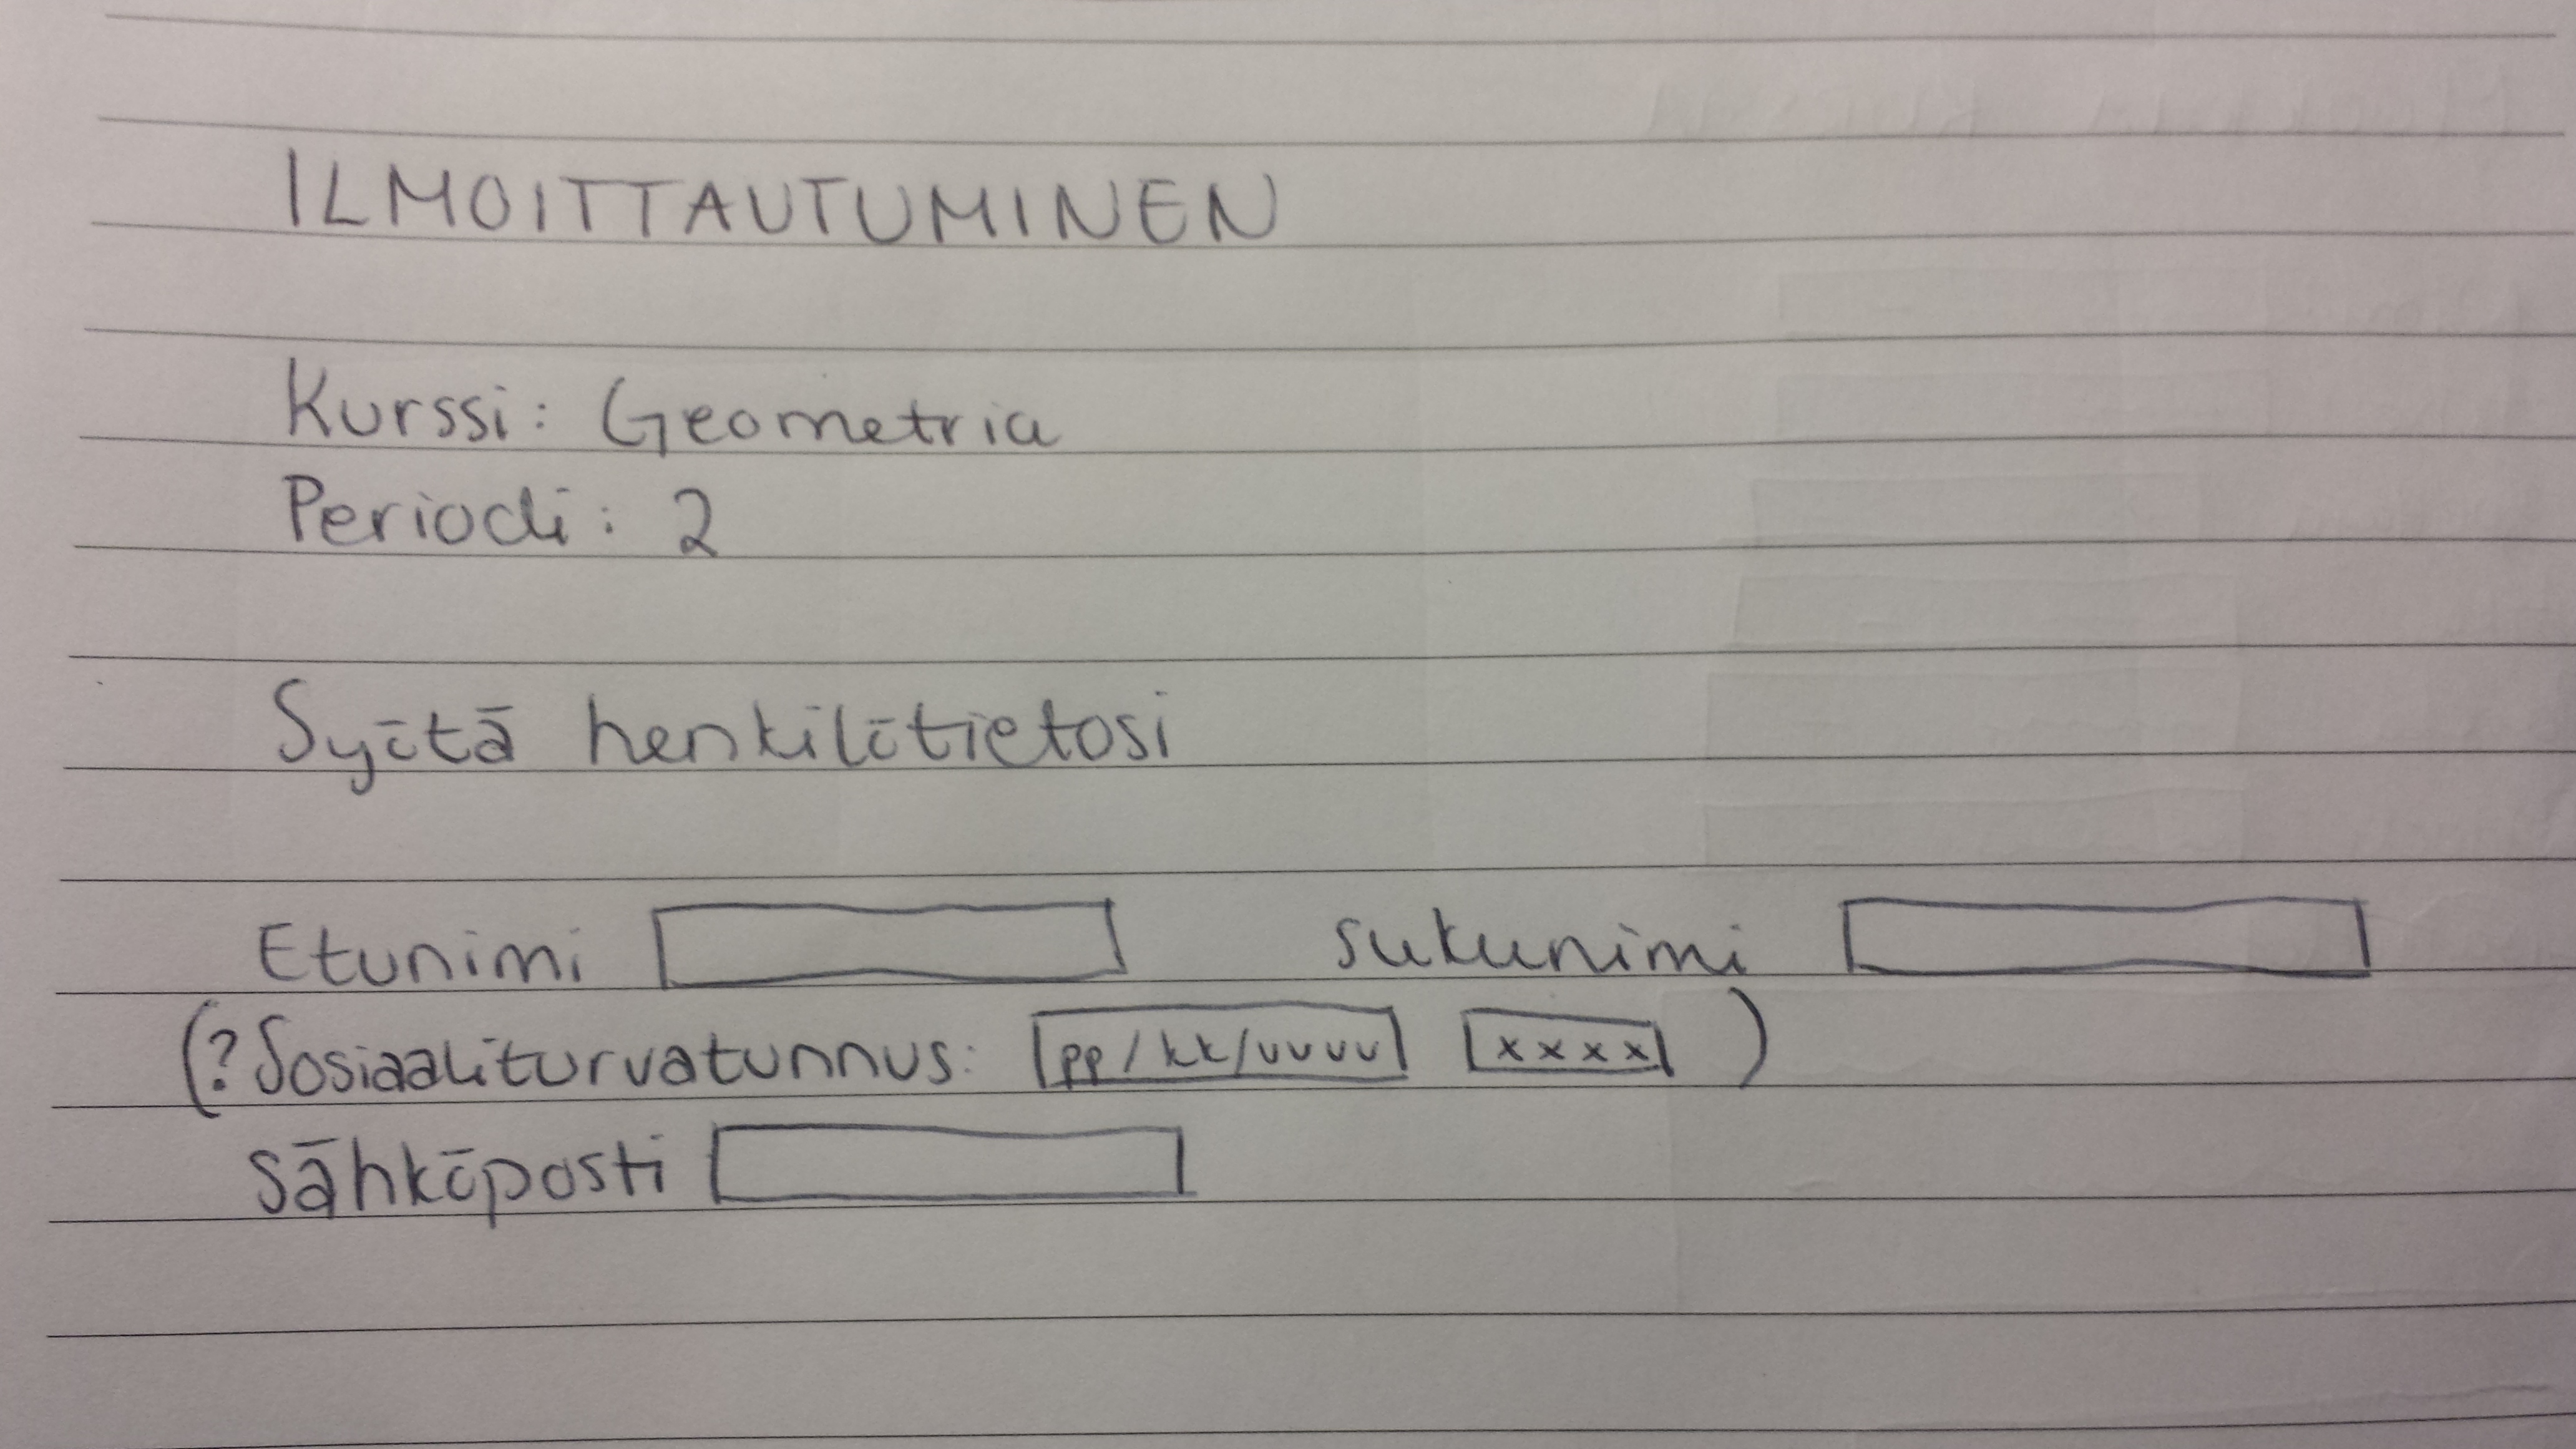 ILMOITTAUTUMINEN
Kurssi: Geometria
Periodi: 2
Syötä henkilötietosi
Etunimi sukunimi
(? Sosiaaliturvatunnus: pp/kk/vvvv xxxx )
Sähköposti